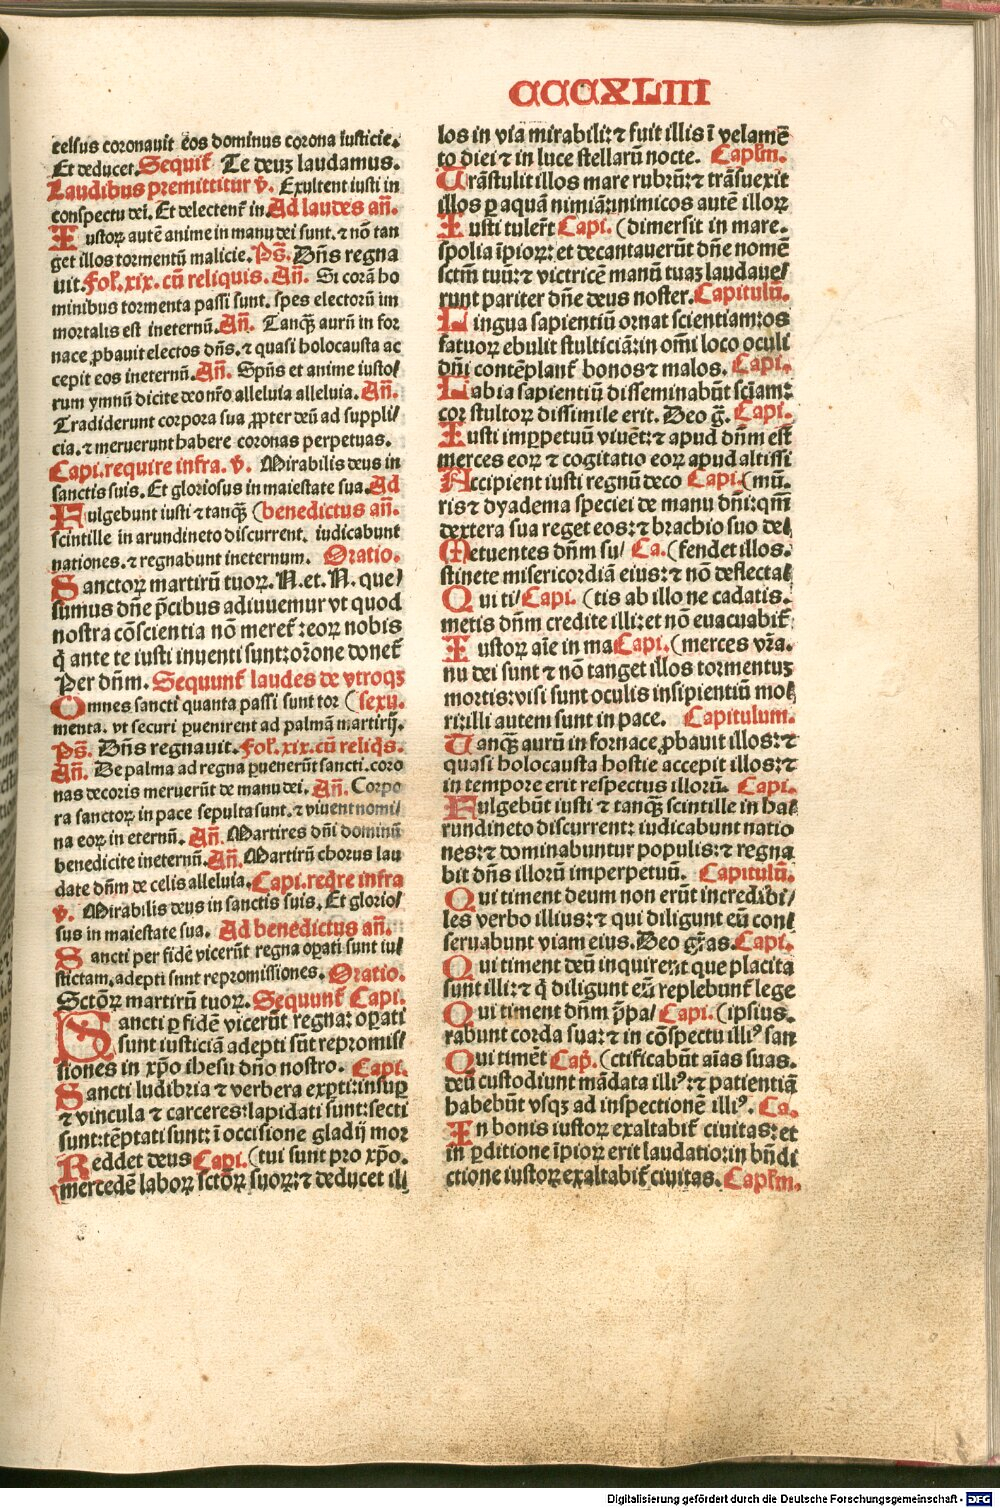 CCCXLIII
celsus coronauit eos dominus corona iusticie.
Et deducet. Sequit᷑ Te deuꝫ laudamus.
Laudibus premittitur ꝟ. Exultent iusti in
conspectu dei. Et delectent᷑ in. Ad laudes an̄.
Iustoꝝ autē anime in manu dei sunt. ⁊ nō tan
get illos tormentū malicie. Ps̄. Dn̄s regna
uit. Fol. xix. cū reliquis. An̄. Si corā ho
minibus tormenta passi sunt. spes electorū im
mortalis est ineternū. An̄. Tanqꝫ aurū in for
nace ꝓbauit electos dn̄s. ⁊ quasi holocausta ac
cepit eos ineternū. An̄. Spūs et anime iusto/
rum ymnū dicite deo nr̄o alleluia alleluia. An̄.
Tradiderunt corpora sua ꝓpter deū ad suppli/
cia. ⁊ meruerunt habere coronas perpetuas.
Capi. require infra. ꝟ. Mirabilis deus in
sanctis suis. Et gloriosus in maiestate sua. Ad
Fulgebunt iusti ⁊ tanqꝫ (benedictus an̄.
scintille in arundineto discurrent. iudicabunt
nationes. ⁊ regnabunt ineternum. Oratio.
Sanctoꝝ martirū tuoꝝ. N. et. N. que/
sumus dn̄e p̄cibus adiuuemur vt quod
nostra cōscientia nō meret᷑: eoꝝ nobis
q̇ ante te iusti inuenti sunt: orōne donet᷑
Per dn̄m. Sequunt᷑ laudes de vtroqꝫ
Omnes sancti quanta passi sunt tor (sexu.
menta. vt securi ꝑuenirent ad palmā martirij.
Ps̄. Dn̄s regnauit. Fol. xix. cū reliqs̄.
An̄. De palma ad regna ꝑuenerūt sancti. coro
nas decoris meruerūt de manu dei. An̄. Corpo
ra sanctoꝝ in pace sepulta sunt. ⁊ viuent nomi/
na eoꝝ in eternū. An̄. Martires dn̄i dominū
benedicite ineternū. An̄. Martirū chorus lau
date dn̄m de celis alleluia. Capi. reqr̄e infra
ꝟ. Mirabilis deus in sanctis suis. Et glorio/
sus in maiestate sua. Ad benedictus an̄.
Sancti per fidē vicerūt regna oꝑati sunt iu/
sticiam. adepti sunt repromissiones. Oratio.
Sctōꝝ martirū tuoꝝ. Sequunt᷑ Capi.
Sancti ꝑ fidē vicerūt regna: oꝑati
sunt iusticiā adepti sūt repromis/
siones in xp̄o ihesu dn̄o nostro. Capi.
Sancti ludibria ⁊ verbera exꝑti: insuꝑ
⁊ vincula ⁊ carceres: lapidati sunt: secti
sunt: tēptati sunt: ī occisione gladij mor
Reddet deus Capi. (tui sunt pro xp̄o.
mercedē laboꝝ sctōꝝ suoꝝ: ⁊ deducet il/
los in via mirabili: ⁊ fuit illis ī velamē
to diei ⁊ in luce stellarū nocte. Capl̄m.
Trāstulit illos mare rubrū: ⁊ trāsuexit
illos ꝑ aquā nimiā: inimicos autē illoꝝ
Iusti tuler̄t Capi. (dimersit in mare.
spolia īpioꝝ: et decantauerūt dn̄e nomē
sctm̄ tuū: ⁊ victricē manū tuaꝫ laudaue/
runt pariter dn̄e deus noster. Capitulū.
Lingua sapientiū ornat scientiam: os
fatuoꝝ ebulit stulticiā: in om̄i loco oculi
dn̄i contēplant᷑ bonos ⁊ malos. Capi.
Labia sapientiū disseminabūt sciam̄:
cor stultoꝝ dissimile erit. Deo gr̄. Capi.
Iusti imꝑpetuū viuēt: ⁊ apud dn̄m est
merces eoꝝ ⁊ cogitatio eoꝝ apud altissi
Accipient iusti regnū deco Capi. (mū.
ris ⁊ dyadema speciei de manu dn̄i: qm̄
dextera sua reget eos: ⁊ brachio suo de/
Metuentes dn̄m su/ Ca. (fendet illos.
stinete misericordiā eius: ⁊ nō deflecta/
Qui ti/ Capi. (tis ab illo ne cadatis.
metis dn̄m credite illi: et nō euacuabit᷑
Iustoꝝ aīe in ma Capi. (merces vr̄a.
nu dei sunt ⁊ nō tanget illos tormentuꝫ
mortis: visi sunt oculis insipientiū mo/
ri: illi autem sunt in pace. Capitulum.
Tanqꝫ aurū in fornace ꝓbauit illos: ⁊
quasi holocausta hostie accepit illos: ⁊
in tempore erit respectus illorū. Capi.
Fulgebūt iusti ⁊ tanqꝫ scintille in ha/
rundineto discurrent: iudicabunt natio
nes: ⁊ dominabuntur populis: ⁊ regna
bit dn̄s illorū imperpetuū. Capitulū.
Qui timent deum non erūt incredibi/
les verbo illius: ⁊ qui diligunt eū con/
seruabunt viam eius. Deo gr̄as. Capi.
Qui timent deū inquirent que placita
sunt illi: ⁊ q̇ diligunt eū replebunt᷑ lege
Qui timent dn̄m p̄pa/ Capi. (ipsius.
rabunt corda sua: ⁊ in cōspectu illiꝰ san
Qui timēt Cap̄. (ctificabūt aīas suas.
deū custodiunt mādata illiꝰ: ⁊ patientiā
habebūt vsqꝫ ad inspectionē illiꝰ. Ca.
In bonis iustoꝝ exaltabit᷑ ciuitas: et
in ꝑditione īpioꝝ erit laudatio: in bn̄di
ctione iustoꝝ exaltabit᷑ ciuitas. Capl̄m.
Digitalisierung gefördert durch die Deutsche Forschungsgemeinschaft - DFG